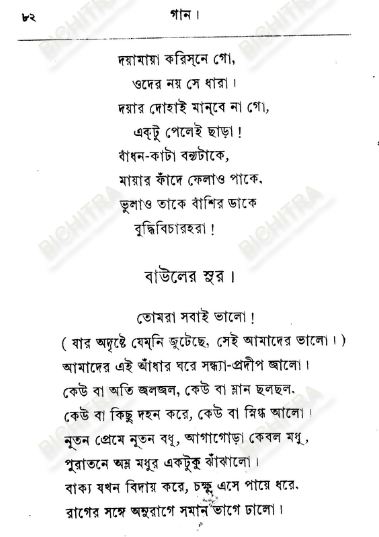 ৮২
গান।
দয়ামায়া করিস্‌নে গো,
ওদের নয় সে ধারা।
দয়ার দোহাই মান্‌বে না গো,
একটু পেলেই ছাড়া!
বাঁধন-কাটা বন্যটাকে,
মায়ার ফাঁদে ফেলাও পাকে,
ভুলাও তাকে বাঁশির ডাকে
বুদ্ধিবিচারহরা!
বাউলের সুর।
তোমরা সবাই ভালো!
( যার অদৃষ্টে যেম্‌নি জুটেছে, সেই আমাদের ভালো। )
আমাদের এই আঁধার ঘরে সন্ধ্যা-প্রদীপ জ্বালো।
কেউ বা অতি জলজল, কেউ বা ম্লান ছলছল,
কেউ বা কিছু দহন করে, কেউ বা স্নিগ্ধ আলো।
নূতন প্রেমে নূতন বধূ, আগাগোড়া কেবল মধু,
পুরাতনে অম্ল মধুর একটুকু ঝাঁঝালো।
বাক্য যখন বিদায় করে, চক্ষু এসে পায়ে ধরে,
রাগের সঙ্গে অনুরাগে সমান ভাগে ঢালো।
BICHITRA
BICHITRA
BICHITRA
BICHITRA
BICHITRA
BICHITRA